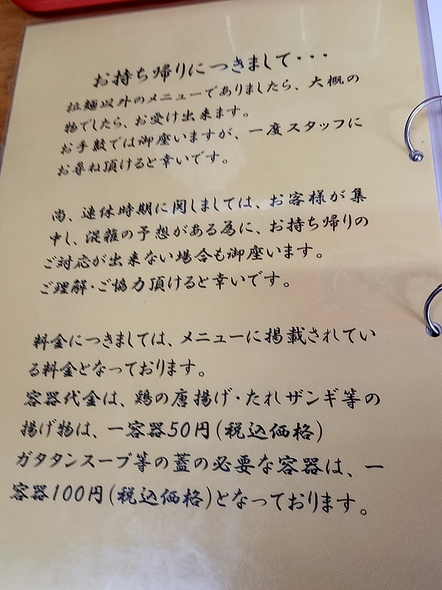 お持ち帰りにつきまして・・・
拉麺以外のメニューでありましたら、大概の
物でしたら、お受け出来ます。
お手数では御座いますが、一度スタッフに
お尋ね頂けると幸いです。
尚、連休時期に関しましては、お客様が集
中し、混雑の予想がある為に、お持ち帰りの
ご対応が出来ない場合も御座います。
ご理解・ご協力頂けると幸いです。
料金につきましては、メニューに掲載されてい
る料金となっております。
容器代金は、鶏の唐揚げ・たれザンギ等の
揚げ物は、一容器50円(税込価格)
ガタタンスープ等の蓋の必要な容器は、一
容器100円(税込価格)となっております。